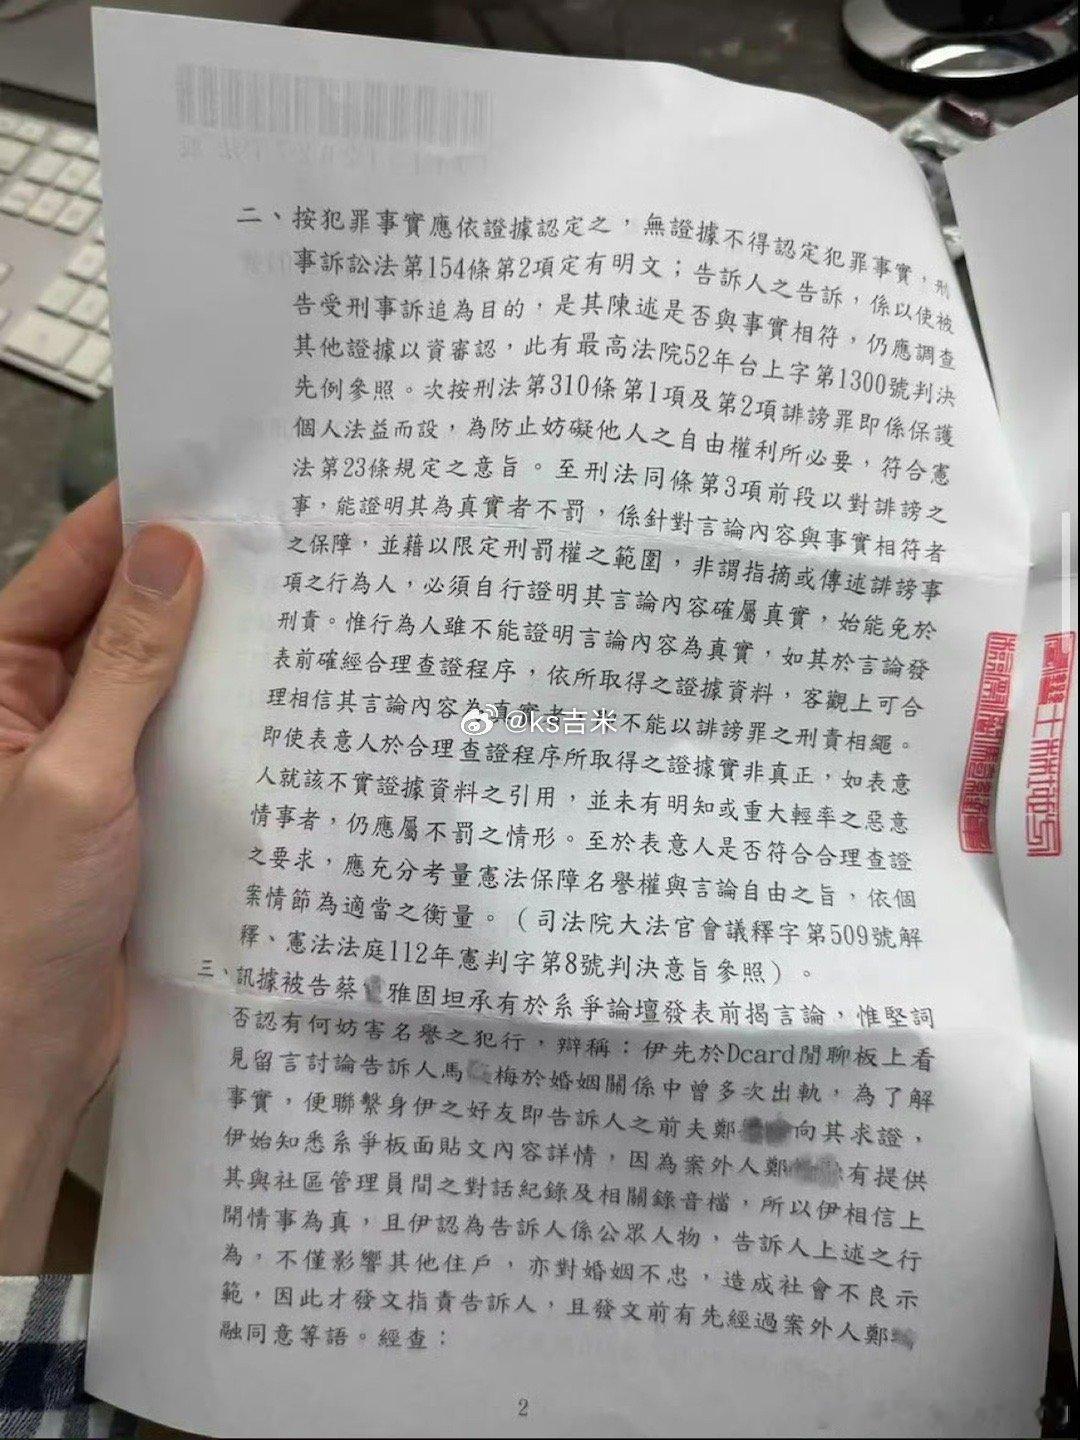 二、按犯罪事實應依證據認定之，無證據不得認定犯罪事實，刑
事訴訟法第154條第2項定有明文；告訴人之告訴，係以使被
告受刑事訴追為目的，是其陳述是否與事實相符，仍應調查
其他證據以資審認，此有最高法院52年台上字第1300號判決
先例參照。次按刑法第310條第1項及第2項誹謗罪即係保護
個人法益而設，為防止妨礙他人之自由權利所必要，符合憲
法第23條規定之意旨。至刑法同條第3項前段以對誹謗之
事，能證明其為真實者不罰，係針對言論內容與事實相符者
之保障，並藉以限定刑罰權之範圍，非謂指摘或傳述誹謗事
項之行為人，必須自行證明其言論內容確屬真實，始能免於
刑責。惟行為人雖不能證明言論內容為真實，如其於言論發
表前確經合理查證程序，依所取得之證據資料，客觀上可合
理相信其言論內容為真實 不能以誹謗罪之刑責相繩。
@ks吉米
即使表意人於合理查證程序所取得之證據實非真正，如表意
人就該不實證據資料之引用，並未有明知或重大輕率之惡意
情事者，仍應屬不罰之情形。至於表意人是否符合合理查證
之要求，應充分考量憲法保障名譽權與言論自由之旨，依個
案情節為適當之衡量。（司法院大法官會議釋字第509號解
釋、憲法法庭112年憲判字第8號判決意旨參照）。
三、訊據被告蔡 雅固坦承有於系爭論壇發表前揭言論，惟堅詞
否認有何妨害名譽之犯行，辯稱：伊先於Dcard閒聊板上看
見留言討論告訴人馬 梅於婚姻關係中曾多次出軌，為了解
事實，便聯繫身伊之好友即告訴人之前夫鄭 向其求證，
伊始知悉系爭板面貼文內容詳情，因為案外人鄭 有提供
其與社區管理員間之對話紀錄及相關錄音檔，所以伊相信上
開情事為真，且伊認為告訴人係公眾人物，告訴人上述之行
為，不僅影響其他住戶，亦對婚姻不忠，造成社會不良示
範，因此才發文指責告訴人，且發文前有先經過案外人鄭
融同意等語。經查：
2